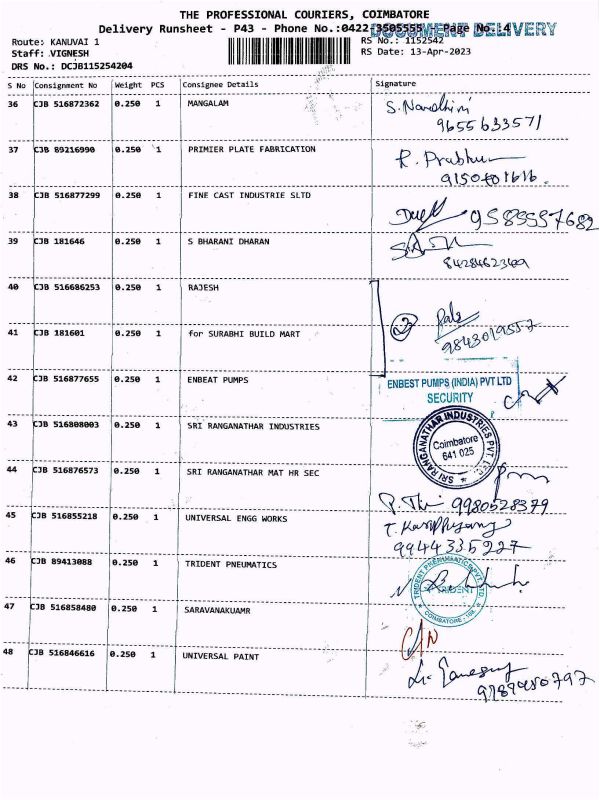 THE PROFESSIONAL COURIERS, COIMBATORE
Delivery Runsheet - P43 - Phone No.:0422-3505555 Page No.:4
DOCUMENT DELIVERY
Route: KANUVAI 1
RS No.: 1152542
Staff: VIGNESH
RS Date: 13-Apr-2023
DRS No.: DCJB115254204
S No Consignment No Weight PCS Consignee Details Signature
36 CJB 516872362 0.250 1 MANGALAM S. Nandhini
9655633571
37 CJB 89216990 0.250 1 PRIMIER PLATE FABRICATION R. Prabhu
38 CJB 516877299 0.250 1 FINE CAST INDUSTRIE SLTD
39 CJB 181646 0.250 1 S BHARANI DHARAN
40 CJB 516686253 0.250 1 RAJESH
41 CJB 181601 0.250 1 for SURABHI BUILD MART
42 CJB 516877655 0.250 1 ENBEAT PUMPS
ENBEST PUMPS (INDIA) PVT LTD
SECURITY
43 CJB 516808003 0.250 1 SRI RANGANATHAR INDUSTRIES
SRI RANGANATHAR INDUSTRIES PVT. LTD.
Coimbatore
641 025
44 CJB 516876573 0.250 1 SRI RANGANATHAR MAT HR SEC
9980528379
45 CJB 516855218 0.250 1 UNIVERSAL ENGG WORKS
9944335227
46 CJB 89413088 0.250 1 TRIDENT PNEUMATICS
TRIDENT PNEUMATICS PVT. LTD.
TRIDENT
COIMBATORE
47 CJB 516858480 0.250 1 SARAVANAKUAMR
48 CJB 516846616 0.250 1 UNIVERSAL PAINT